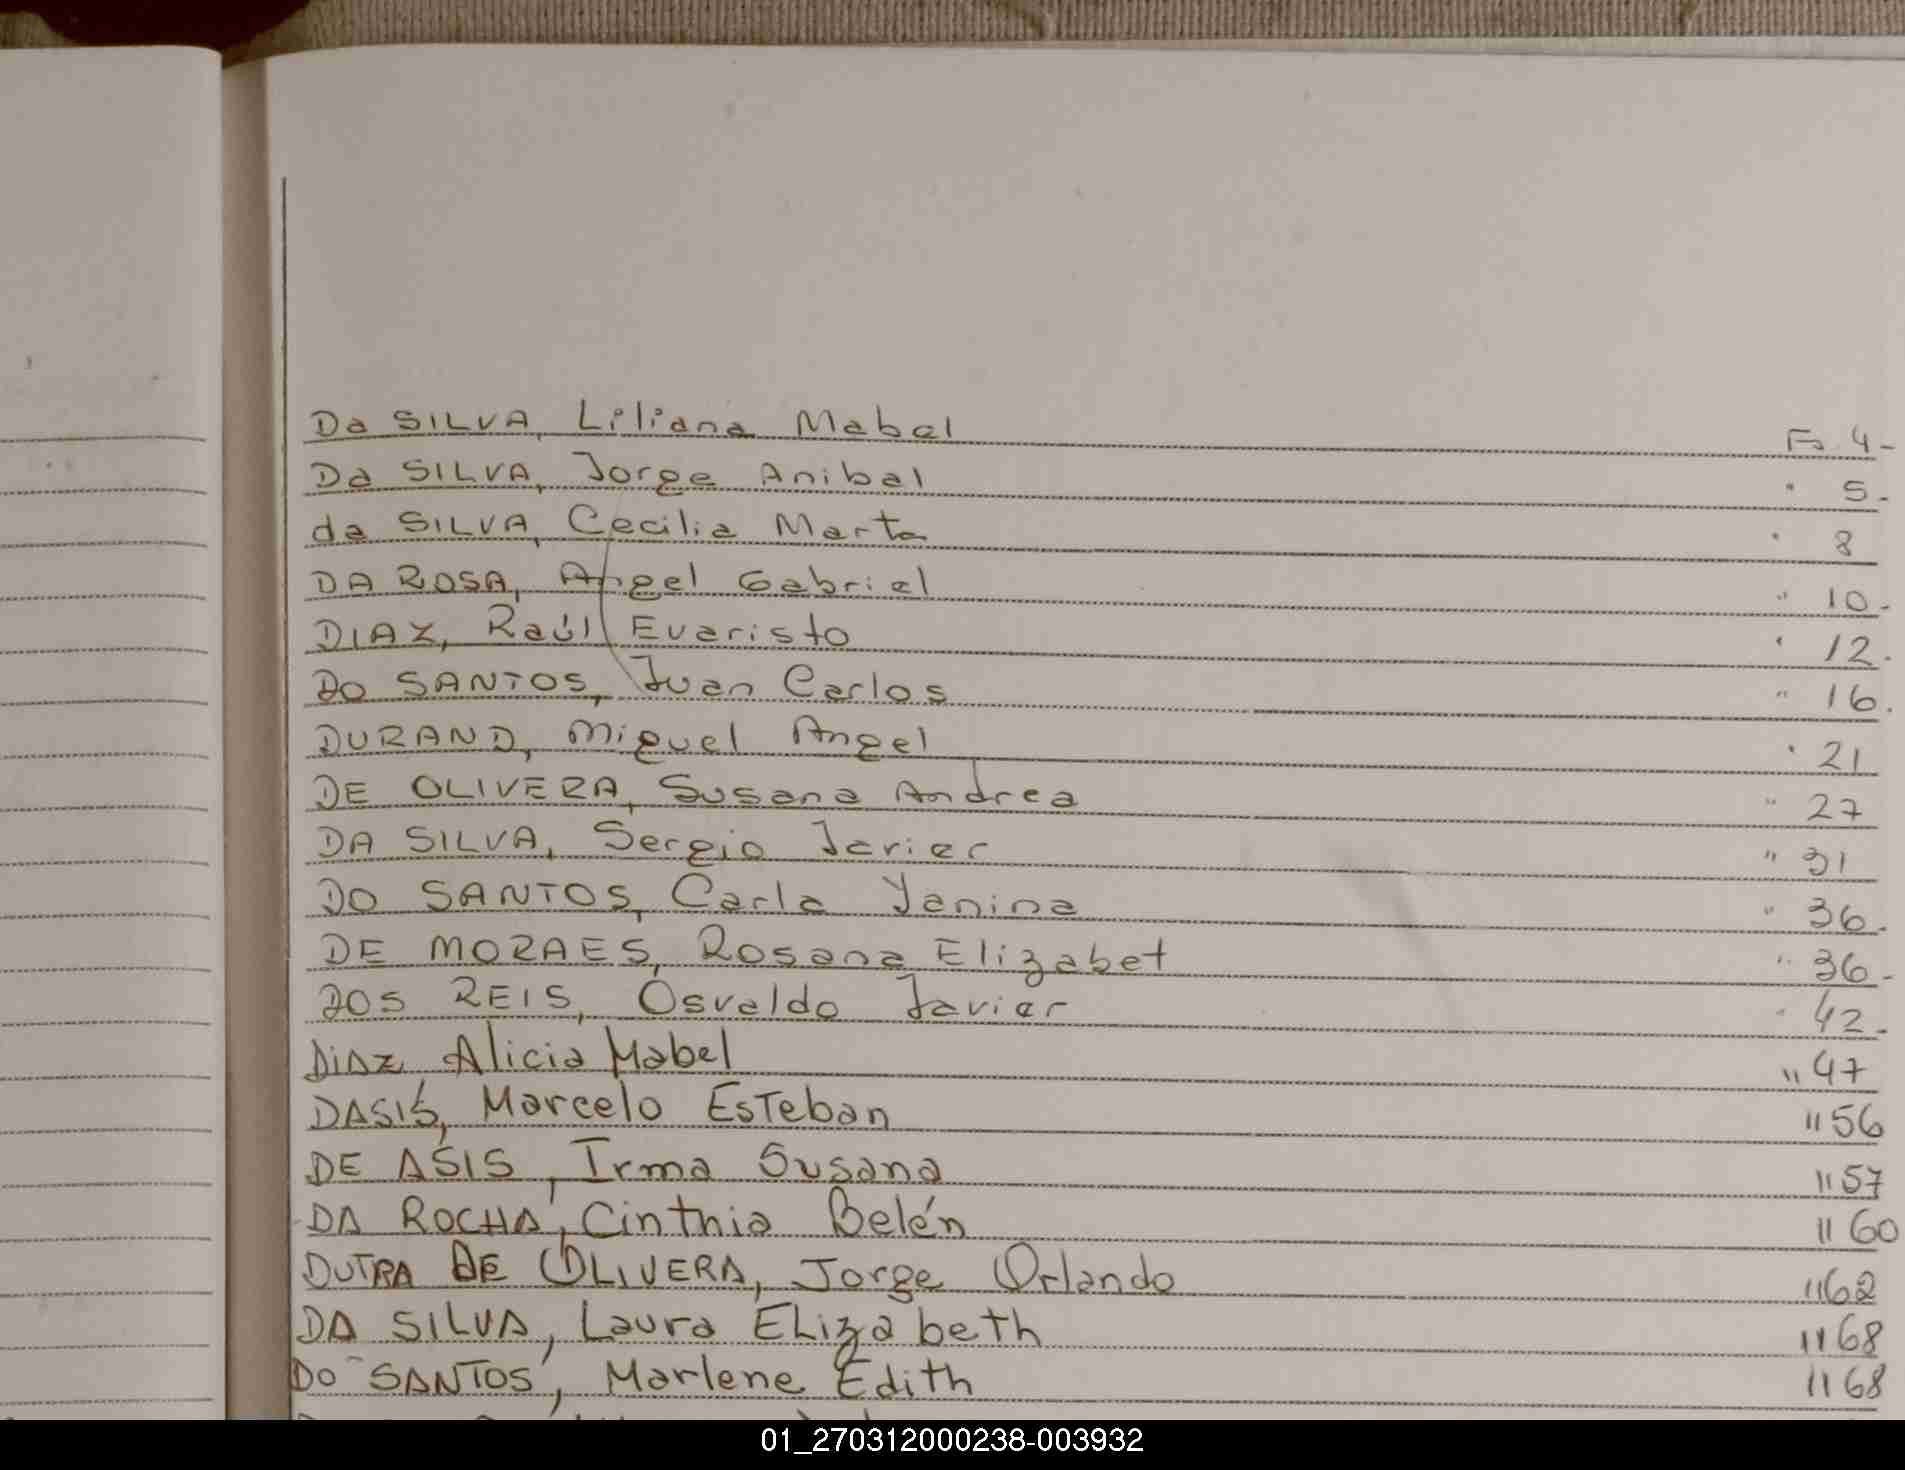 Da SILVA, Liliana Mabel Fo 4-
Da SILVA, Jorge Anibal " 5-
da SILVA, Cecilia Marta " 8
DA ROSA, Angel Gabriel " 10-
DIAZ, Raúl Evaristo " 12.
DO SANTOS, Juan Carlos " 16.
DURAND, Miguel Angel " 21
DE OLIVERA, Susana Andrea " 27
DA SILVA, Sergio Javier " 31
DO SANTOS, Carla Yanina " 36.
DE MORAES, Rosana Elizabet " 36-
DOS REIS, Osvaldo Javier " 42.
DiAZ Alicia Mabel " 47
DASIS, Marcelo Esteban " 56
DE ASIS, Irma Susana " 57
DA ROCHA, Cinthia Belén " 60
DUTRA DE OLIVERA, Jorge Orlando " 62
DA SILVA, Laura Elizabeth " 68
DO SANTOS, Marlene Edith " 68
01_270312000238-003932